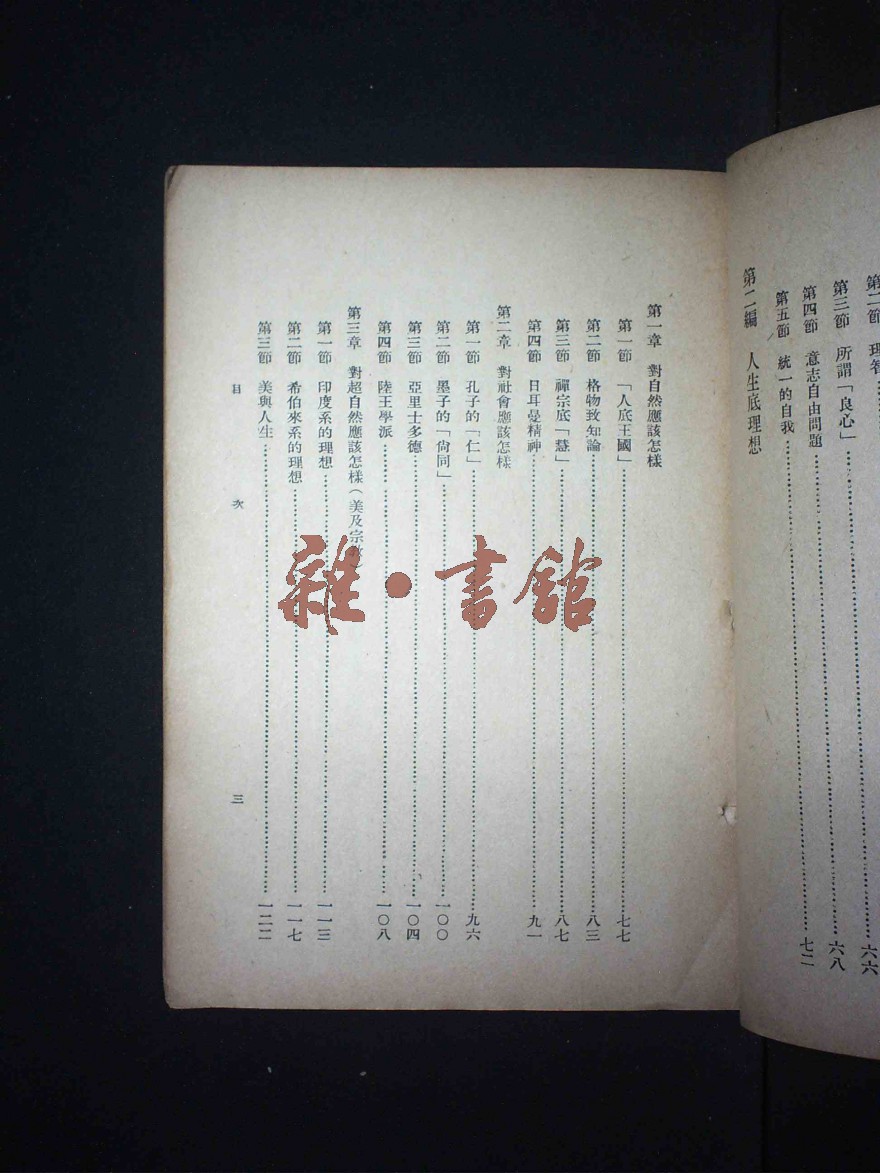 第二節 理
六六
第三節 所謂「良心」……六八
第四節 意志自由問題……七二
第五節 統一的自我……
第二編 人生底理想
第一章 對自然應該怎樣
第一節 「人底王國」……七七
第二節 格物致知論……八三
第三節 禪宗底「慧」……八七
第四節 日耳曼精神……九一
第二章 對社會應該怎樣
第一節 孔子的「仁」……九六
第二節 墨子的「尚同」……一〇〇
第三節 亞里士多德……一〇四
第四節 陸王學派……一〇八
第三章 對超自然應該怎樣(美及宗教)
第一節 印度系的理想……一一三
第二節 希伯來系的理想……一一七
第三節 美與人生……一二二
目 次
三
雜·書館